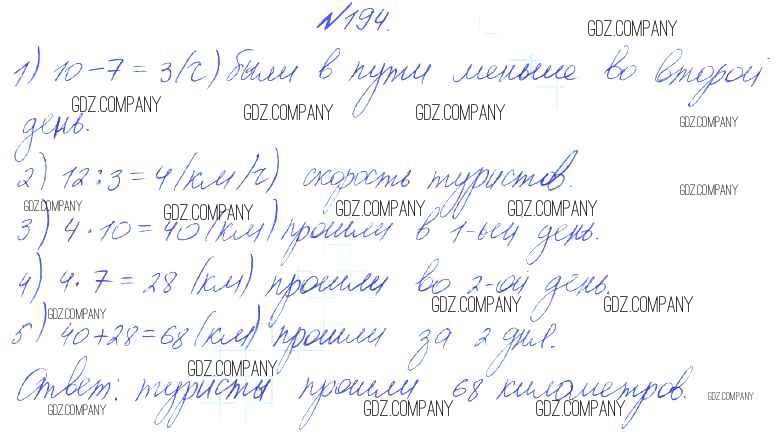 №194.
GDZ.COMPANY
1) 10-7=3(ч) были в пути меньше во второй
GDZ.COMPANY GDZ.COMPANY GDZ.COMPANY GDZ.COMPANY
день.
2) 12:3=4(км/ч) скорость туристов.
GDZ.COMPANY
GDZ.COMPANY GDZ.COMPANY GDZ.COMPANY GDZ.COMPANY
3) 4·10=40(км) прошли в 1-ый день.
4) 4·7=28 (км) прошли во 2-ой день.
GDZ.COMPANY GDZ.COMPANY GDZ.COMPANY
5) 40+28=68(км) прошли за 2 дня.
GDZ.COMPANY
Ответ: туристы прошли 68 километров.
GDZ.COMPANY GDZ.COMPANY GDZ.COMPANY GDZ.COMPANY